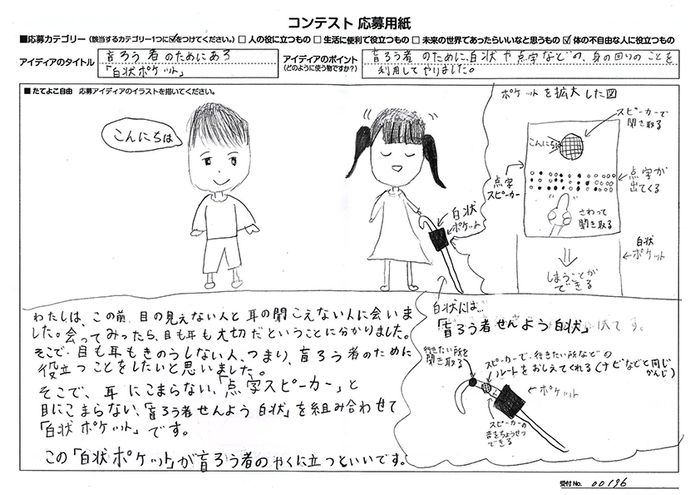 コンテスト 応募用紙
■応募カテゴリー（該当するカテゴリー1つに☑をつけてください。） □ 人の役に立つもの □ 生活に便利で役立つもの □ 未来の世界であったらいいなと思うもの ☑ 体の不自由な人に役立つもの
アイディアのタイトル
盲ろう者のためにある
「白状ポケット」
アイディアのポイント
（どのように使う物ですか？）
盲ろう者のために、白状や点字などの、身の回りのことを
利用してやりました。
■たてよこ自由 応募アイディアのイラストを描いてください。
こんにちは
白状
ポケット
ポケットを拡大した図
スピーカーで
聞き取る
こんにちは
点字
スピーカー
点字が
出てくる
さわって
聞き取る
白状
ポケット
しまうことが
できる
わたしは、この前、目の見えない人と耳の聞こえない人に会いま
した。会ってみったら、目も耳も大切だということに分かりました。
そこで、目も耳もきのうしない人、つまり、盲ろう者のために
役立つことをしたいと思いました。
そこで、耳にこまらない、「点字スピーカー」と
目にこまらない、「盲ろう者せんよう白状」を組み合わせて
「白状ポケット」です。
この「白状ポケット」が盲ろう者のやくに立つといいです。
白状には…
「盲ろう者せんよう白状」
行きたい所を
聞き取る
スピーカーで、行きたい所などの
ルートをおしえてくれる（ナビなどと同じ
かんじ）
ポケット
スピーカーの
音をちょうせつ
できる
受付No. 00196